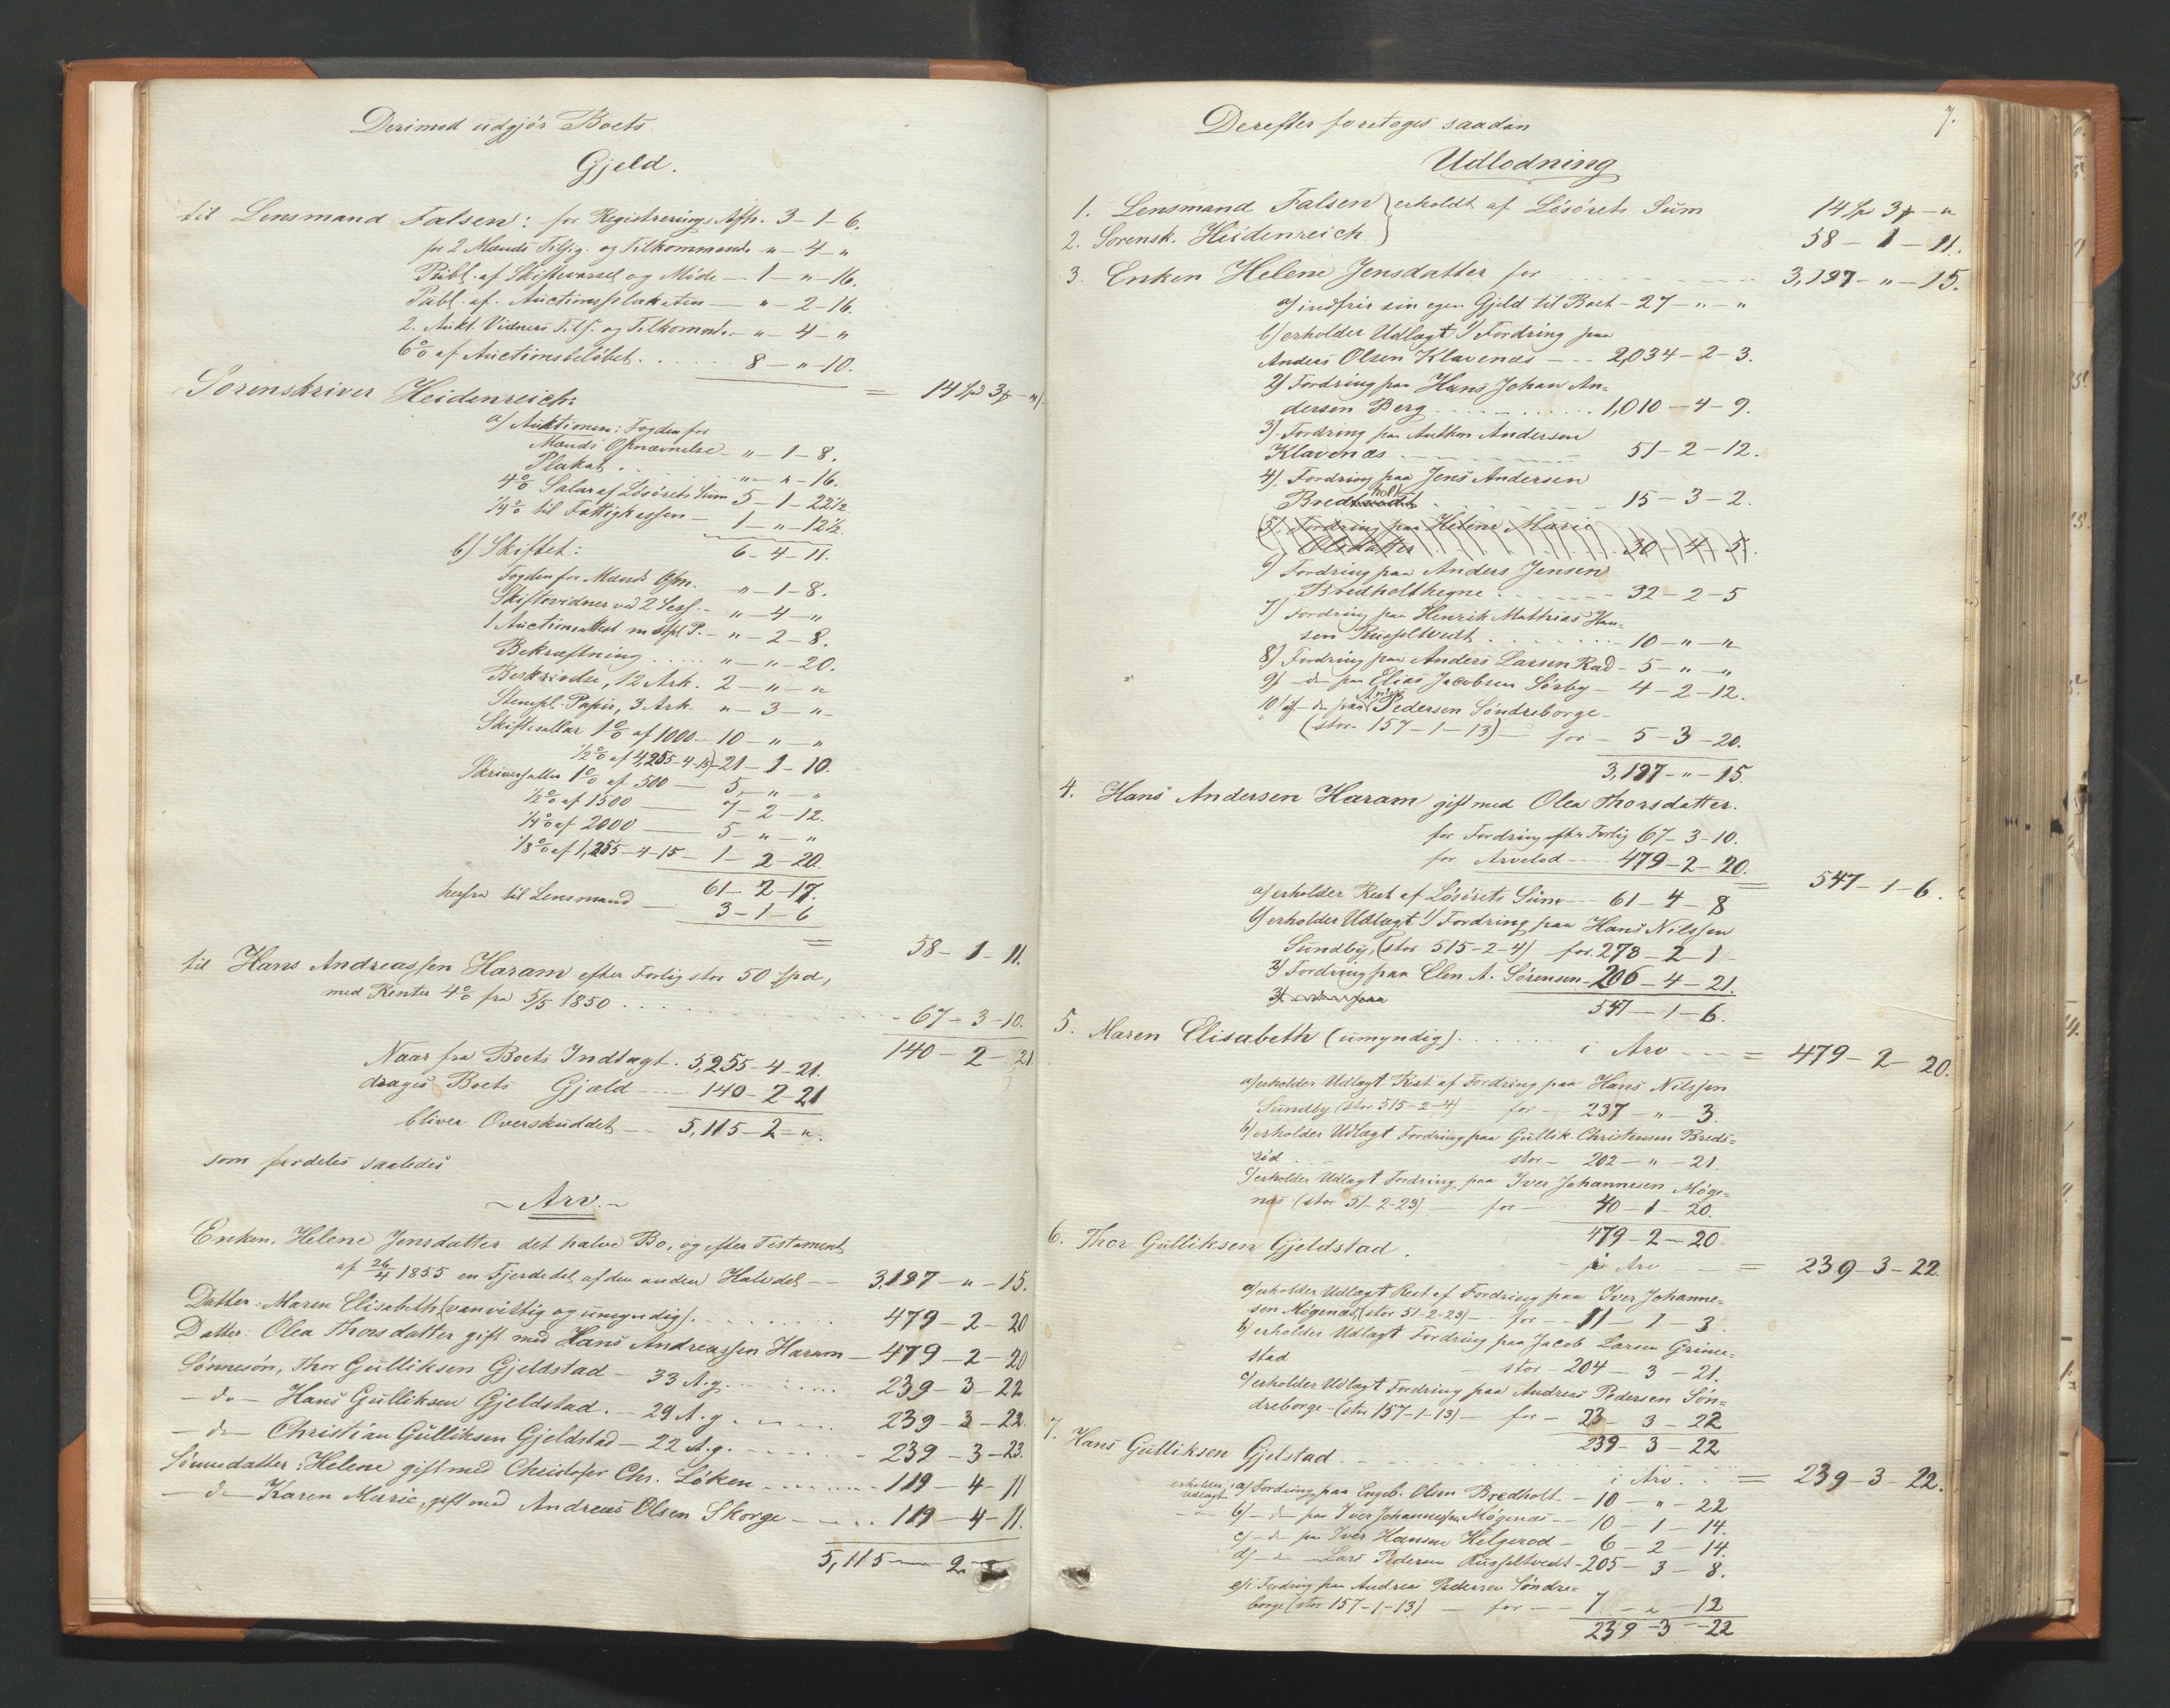 Derimod udgjør Boets
Gjeld.
til Lensmand Falsen: for Registrerings Afh. 3-1-6.
for 2 Mænds Tilsig. og Tilkommende " - 4 - "
Publ. af Skiftevarsel og Møde - 1 - " - 16.
Publ. af Auctionsplakaten - " - 2 - 16.
2. Aukt. Vidners Tils. og Tilkommende - " - 4 - "
6% af Auctionsbeløbet . . . 8 - " - 10.
= 14 Spd 3 - "
Sorenskriver Heidenreich:
a) Auktionen: Fogden for
Mænds Opnævnelse - " - 1 - 8.
Plakat . " - " - 16.
4% Salær af Løsørets Sum 5 - 1 - 22½
¼% til Fattigkassen - 1 - " - 12½.
b) Skiftet: 6 - 4 - 11.
Fogden for Mænds Opn. " - 1 - 8.
Skiftevidner ved 2 Sess. - " - 4 - "
1 Auctionsattest m stpl P. - " - 2 - 8.
Bekræftning . . . . . " - " - 20.
Beskrivelse, 12 Ark. 2 - " - "
Stempl. Papir, 3 Ark - " - 3 - " -
Skiftesallar 1% af 1000 - 10 - " - "
½% af 4,255-4-15) - 21 - 1 - 10.
Skriversallar 1% af 500 - 5 - " - "
½% af 1500 - 7 - 2 - 12.
¼% af 2000 - 5 - " - "
1/8% af 1,255-4-15 - 1 - 2 - 20.
61 - 2 - 17.
herfra til Lensmand - 3 - 1 - 6
= 58 - 1 - 11.
til Hans Andreassen Haram efter Forlig stor 50 Spd,
med Renter 4% fra 5/5 1850 . . . - 67 - 3 - 10.
140 - 2 - 21
Naar fra Boets Indtægt . 5,255 - 4 - 21.
drages Boets Gjæld - 140 - 2 - 21
bliver Overskuddet - 5,115 - 2 - ".
som fordeles saaledes
- Arv. -
Enken, Helene Jensdatter det halve Bo, og efter Testament
af 26/4 1855 en Fjerdedel af den anden Halvdel - 3,197 - " - 15.
Datter: Maren Elisabeth (vanvittig og umyndig). . . . 479 - 2 - 20
Datter: Olea Thorsdatter gift med Hans Andreassen Haram - 479 - 2 - 20
Sønnesøn, Thor Gulliksen Gjeldstad - 33 A. g. . . . 239 - 3 - 22
- do - Hans Gulliksen Gjeldstad. - 29 A. g. . . . 239 - 3 - 22.
- do - Christian Gulliksen Gjeldstad - 22 A. g. . . . 239 - 3 - 23.
Sønnedatter: Helene gift med Christofer Chr. Løken . . . 119 - 4 - 11
- do - Karen Marie, gift med Andreas Olsen Skorge - . . 119 - 4 - 11.
5,115 - 2 -
7.
Derefter foretoges saadan
Udlodning
1. Lensmand Falsen } erholdt af Løsørets Sum 14 Spd 3 - "
2. Sorensk. Heidenreich } 58 - 1 - 11.
3. Enken Helene Jensdatter for . . . 3,197 - " - 15.
a) indfrir sin egen Gjeld til Boet - 27 - " - "
b) erholder Udlagt 1) Fordring paa
Anders Olsen Klavenæs - - - 2,034 - 2 - 3.
2) Fordring paa Hans Johan An=
dersen Berg . . . 1,010 - 4 - 9.
3). Fordring paa Anthon Andersen
Klavenæs . . . 51 - 2 - 12.
4). Fordring paa Jens Andersen
Bredholt . . . 15 - 3 - 2.
5) Fordring paa Helene Marie
Olsdatter . . . 30 - 4 - 5.
6) Fordring paa Anders Jensen
Bredholthegne . . . 32 - 2 - 5
7) Fordring paa Henrik Mathias Han=
sen Russeltvedt . . . 10 - " - "
8) Fordring paa Anders Larsen Rad - 5 - " - "
9) - do - paa Elias Jacobsen Sørby - 4 - 2 - 12.
10) af - do paa Andrs Pedersen Søndreborge -
(stor 157 - 1 - 13) - for - 5 - 3 - 20.
3,197 - " - 15.
4. Hans Andersen Haram gift med Olea Thorsdatter.
for Fordring efter Forlig 67 - 3 - 10.
for Arvelod - - 479 - 2 - 20.
= 547 - 1 - 6.
a) erholder Rest af Løsørets Sum - - 61 - 4 - 8
b) erholder Udlagt 1) Fordring paa Hans Nilssen
Sundby, (stor 515 - 2 - 4) for 278 - 2 - 1 -
2) Fordring paa Elen A. Sørensen - 206 - 4 - 21.
3) - do - paa
547 - 1 - 6.
5. Maren Elisabeth (umyndig) . . . i Arv - - = 479 - 2 - 20.
a) erholder Udlagt Rest af Fordring paa Hans Nilssen
Sundby (stor 515 - 2 - 4) - for - 237 - " - 3.
b) erholder Udlagt Fordring paa Gullik Christensen Breds=
rød . . . stor - 202 - " - 21.
c) erholder Udlagt Fordring paa Iver Johannesen Møge=
næs (stor 51 - 2 - 23) - for - 40 - 1 - 20.
479 - 2 - 20
6. Thor Gulliksen Gjeldstad . - i Arv - - = 239 - 3 - 22.
a) erholder Udlagt Rest af Fordring paa Iver Johanne=
sen Møgenæs, (stor 51 - 2 - 23) - for - 11 - 1 - 3.
b) erholder Udlagt Fordring paa Jacob Larsen Grime=
stad - stor - 204 - 3 - 21.
c) erholder Udlagt Fordring paa Andreas Pedersen Søn=
dreborge - (stor 157 - 1 - 13) - for - 23 - 3 - 22
239 - 3 - 22
7. Hans Gulliksen Gjelstad . . . i Arv . . = 239 - 3 - 22.
erholder Udlagt a) Fordring paa Engeb. Olsen Bredholt. - 10 - " - 22
b) - do - paa Iver Johannessen Møgenæs - - 10 - 1 - 14.
c) - do - paa Iver Hansen Helgerod - 6 - 2 - 14.
d) - do - Lars Pedersen Russeltvedt - 205 - 3 - 8.
e) i Fordring paa Andreas Pedersen Søndre=
borge (stor 157 - 1 - 13) - for - - 7 - " - 12
239 - 3 - 22